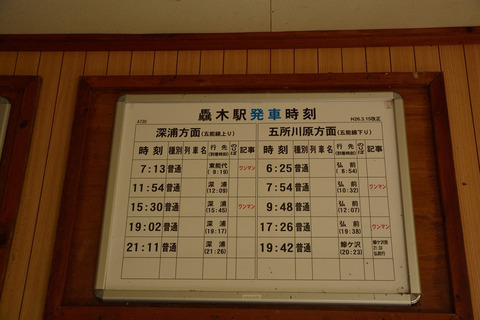 轟木駅発車時刻
A720
H26.3.15改正
深浦方面(五能線上り)
五所川原方面(五能線下り)
時刻 種別 列車名 行先(到着時刻) のりば 記事
時刻 種別 列車名 行先(到着時刻) のりば 記事
7:13 普通 東能代(8:19) ワンマン
6:25 普通 弘前(8:54)
11:54 普通 深浦(12:09)
7:54 普通 弘前(10:32) ワンマン
15:30 普通 深浦(15:45) ワンマン
9:48 普通 弘前(12:07)
19:02 普通 深浦(19:17)
17:26 普通 弘前(19:38) ワンマン
21:11 普通 深浦(21:26)
19:42 普通 鰺ケ沢(20:23)